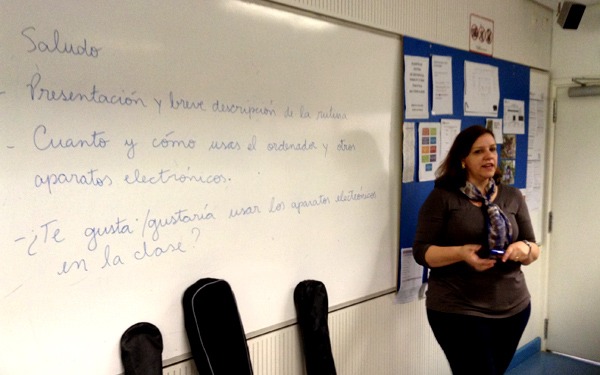 Saludo
- Presentación y breve descripción de la rutina
- Cuanto y cómo usas el ordenador y otros
aparatos electrónicos.
- ¿Te gusta/gustaría usar los aparatos electrónicos
en la clase?